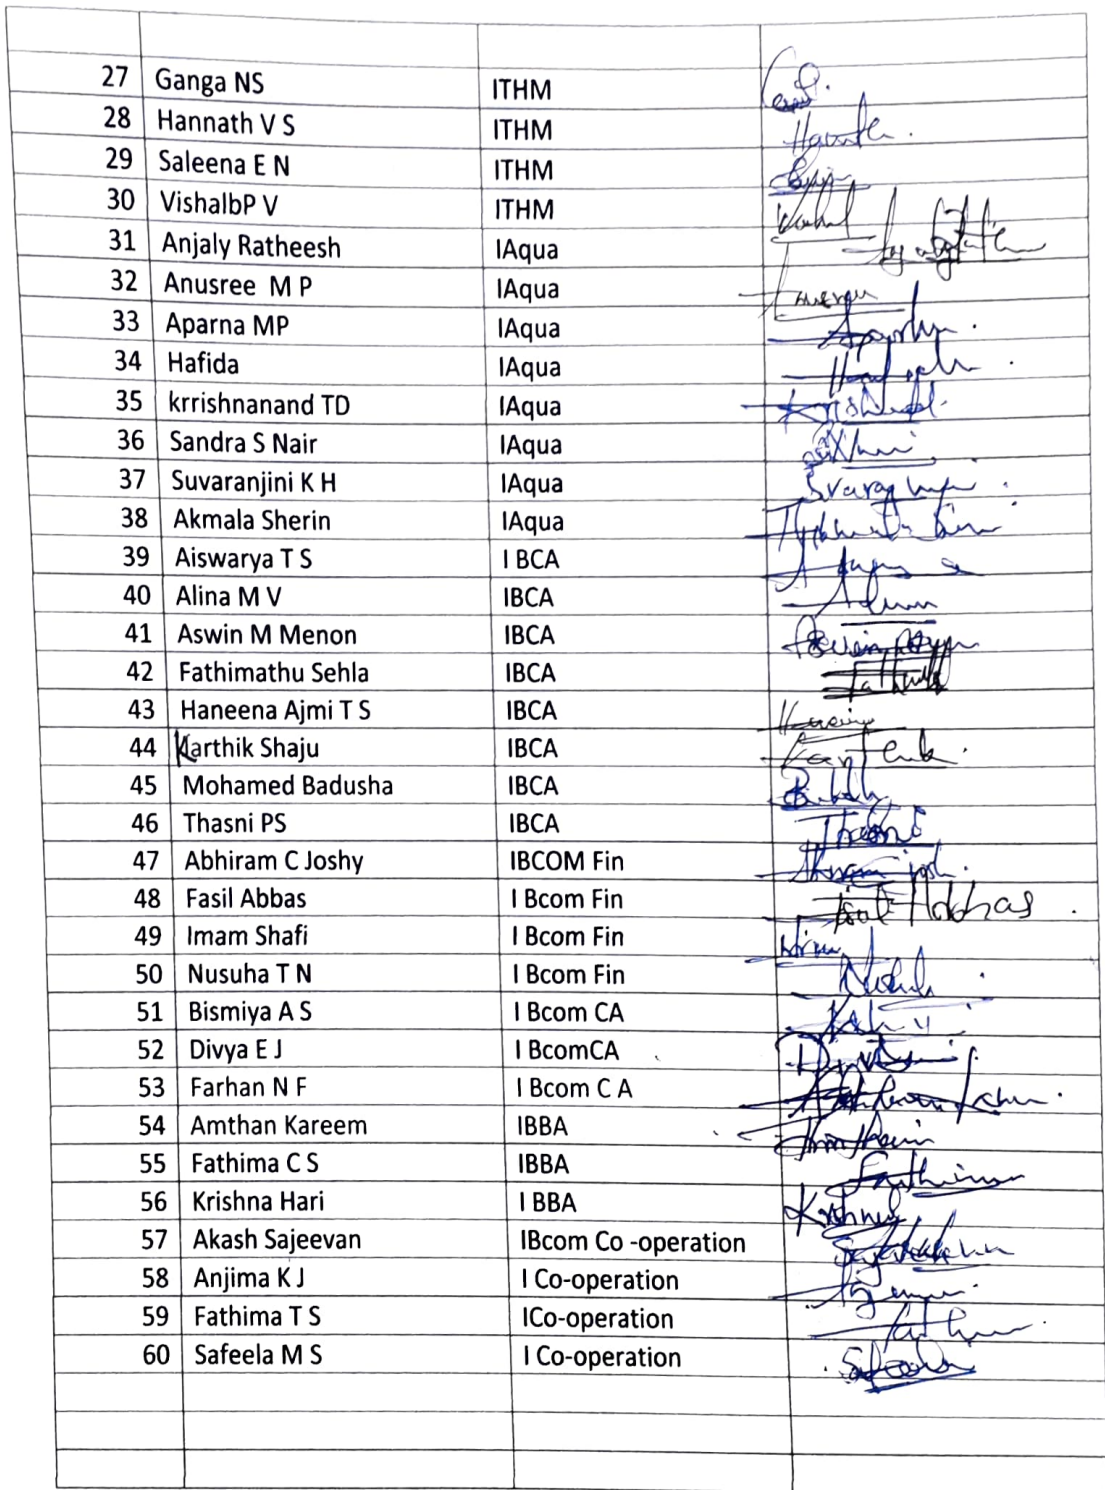 27 Ganga NS ITHM
28 Hannath V S ITHM Hannath.
29 Saleena E N ITHM
30 VishalbP V ITHM Vishal
31 Anjaly Ratheesh IAqua
32 Anusree M P IAqua
33 Aparna MP IAqua
34 Hafida IAqua
35 krrishnanand TD IAqua
36 Sandra S Nair IAqua
37 Suvaranjini K H IAqua
38 Akmala Sherin IAqua
39 Aiswarya T S I BCA
40 Alina M V IBCA
41 Aswin M Menon IBCA
42 Fathimathu Sehla IBCA
43 Haneena Ajmi T S IBCA
44 Karthik Shaju IBCA Karthik.
45 Mohamed Badusha IBCA
46 Thasni PS IBCA Thasni
47 Abhiram C Joshy IBCOM Fin
48 Fasil Abbas I Bcom Fin Fasil Abbas.
49 Imam Shafi I Bcom Fin
50 Nusuha T N I Bcom Fin
51 Bismiya A S I Bcom CA
52 Divya E J I BcomCA
53 Farhan N F I Bcom C A
54 Amthan Kareem IBBA
55 Fathima C S IBBA Fathima
56 Krishna Hari I BBA Krishna
57 Akash Sajeevan IBcom Co -operation
58 Anjima K J I Co-operation
59 Fathima T S ICo-operation
60 Safeela M S I Co-operation Safeela